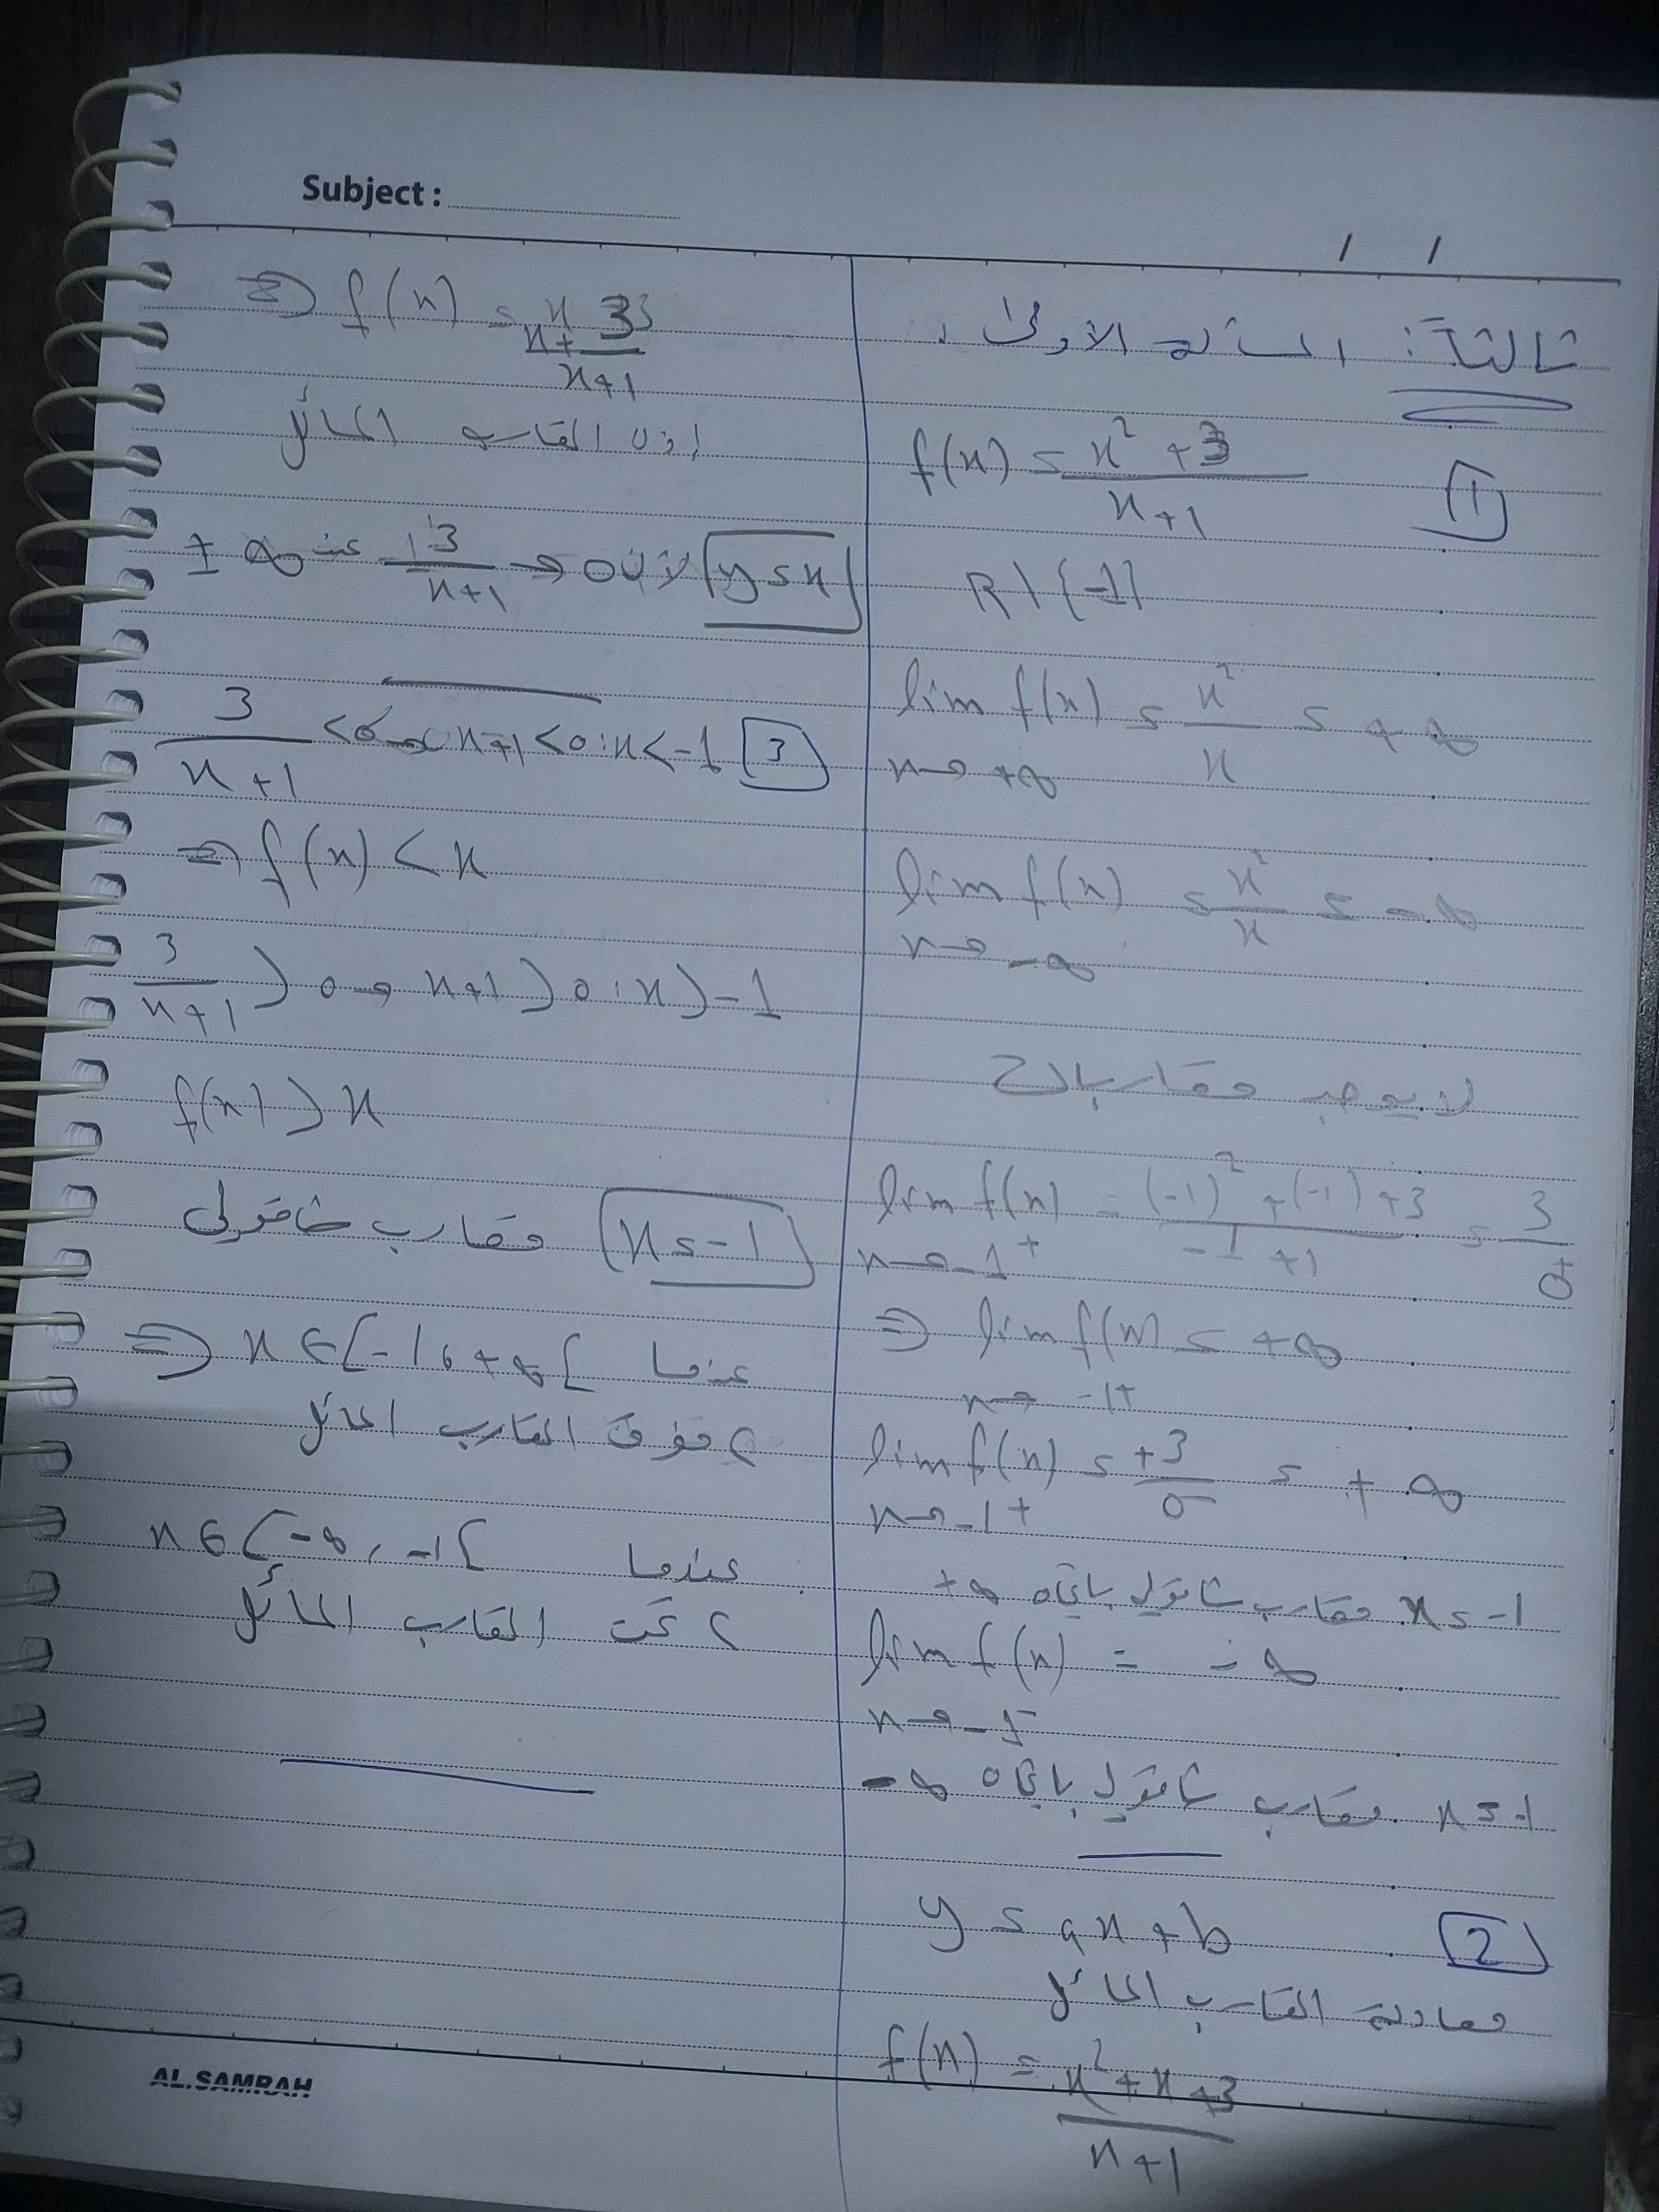 Subject :
/ /
ثالثة : المسألة الأولى .
1
f(x) = x² + 3 / x+1
R \ {-1}
lim f(x) = x² / x = +∞
x→+∞
lim f(x) = x² / x = -∞
x→-∞
لا يوجد مقارب
lim f(x) = (-1)² + (-1) + 3 / -1 +1 = 3 / 0+
x→-1+
⇒ lim f(x) = +∞
x→ -1+
lim f(x) = +3 / 0 = + ∞
x→-1+
x = -1 مقارب شاقولي باتجاه +∞
lim f(x) = -∞
x→-1-
x = -1 مقارب شاقولي باتجاه -∞
2
y = ax + b
معادلة المقارب المائل
f(x) = x² + x + 3 / x+1
⇒ f(x) = x + 3 / x+1
إذن المقارب المائل
y = x لأن 0 ← 3 / x+1 عند ± ∞
3 x < -1 : x+1 < 0 → 3 / x+1 < 0
⇒ f(x) < x
x > -1 : x+1 > 0 → 3 / x+1 > 0
f(x) > x
x = -1 مقارب شاقولي
عندما x ∈ ]-1, +∞[ ⇒
c فوق المقارب المائل
عندما x ∈ ]-∞, -1[
c تحت المقارب المائل
AL.SAMRAH